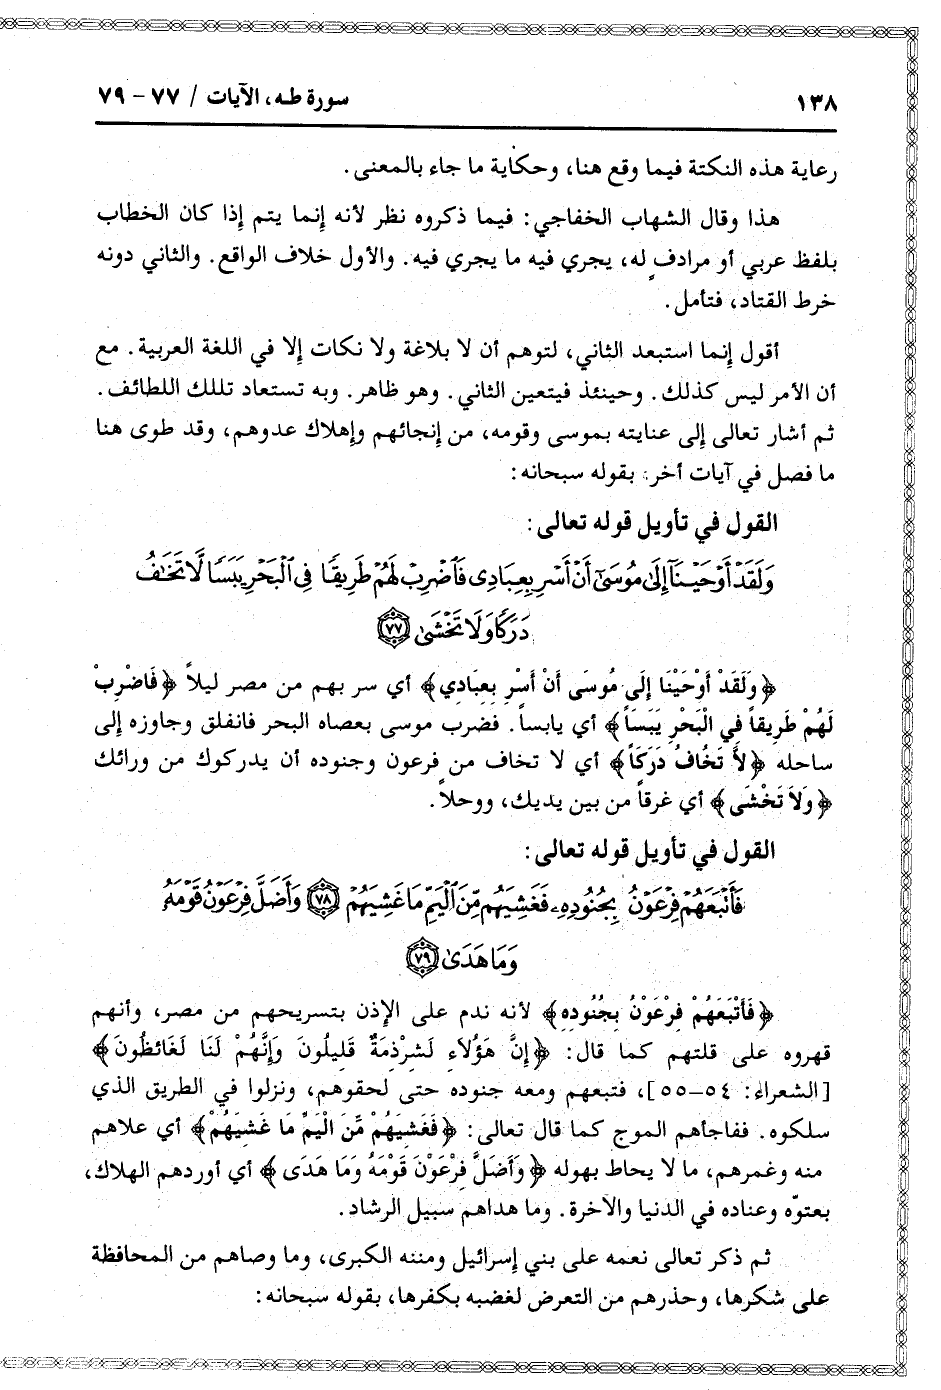 ١٣٨ سورة طـه، الآيات / ٧٧ - ٧٩
رعاية هذه النكتة فيما وقع هنا، وحكاية ما جاء بالمعنى.
هذا وقال الشهاب الخفاجي: فيما ذكروه نظر لأنه إنما يتم إذا كان الخطاب
بلفظ عربي أو مرادفٍ له، يجري فيه ما يجري فيه. والأول خلاف الواقع. والثاني دونه
خرط القتاد، فتأمل.
أقول إنما استبعد الثاني، لتوهم أن لا بلاغة ولا نكات إلا في اللغة العربية. مع
أن الأمر ليس كذلك. وحينئذ فيتعين الثاني. وهو ظاهر. وبه تستعاد تللك اللطائف.
ثم أشار تعالى إلى عنايته بموسى وقومه، من إنجائهم وإهلاك عدوهم، وقد طوى هنا
ما فصل في آيات أخر: بقوله سبحانه:
القول في تأويل قوله تعالى:
وَلَقَدْ أَوْحَيْنَآ إِلَىٰ مُوسَىٰٓ أَنْ أَسْرِ بِعِبَادِى فَٱضْرِبْ لَهُمْ طَرِيقًا فِى ٱلْبَحْرِ يَبَسًا لَّا تَخَٰفُ
دَرَكًا وَلَا تَخْشَىٰ ٧٧
﴿وَلَقَدْ أَوْحَيْنَا إِلَى مُوسَى أَنْ أَسْرِ بِعِبَادِي﴾ أي سر بهم من مصر ليلاً ﴿فَاضْرِبْ
لَهُمْ طَرِيقاً فِي الْبَحْرِ يَبَساً﴾ أي يابساً. فضرب موسى بعصاه البحر فانفلق وجاوزه إلى
ساحله ﴿لاَّ تَخُافُ دَرَكاً﴾ أي لا تخاف من فرعون وجنوده أن يدركوك من ورائك
﴿وَلاَ تَخْشَى﴾ أي غرقاً من بين يديك، ووحلاً.
القول في تأويل قوله تعالى:
فَأَتْبَعَهُمْ فِرْعَوْنُ بِجُنُودِهِۦ فَغَشِيَهُم مِّنَ ٱلْيَمِّ مَا غَشِيَهُمْ ٧٨ وَأَضَلَّ فِرْعَوْنُ قَوْمَهُۥ
وَمَا هَدَىٰ ٧٩
﴿فَأَتْبَعَهُمْ فِرْعَوْنُ بِجُنُودِهِ﴾ لأنه ندم على الإذن بتسريحهم من مصر، وأنهم
قهروه على قلتهم كما قال: ﴿إِنَّ هَؤُلاَءِ لَشِرْذِمَةٌ قَلِيلُونَ وَإِنَّهُمْ لَنَا لَغَائظُونَ﴾
[الشعراء: ٥٤-٥٥]، فتبعهم ومعه جنوده حتى لحقوهم، ونزلوا في الطريق الذي
سلكوه. ففاجأهم الموج كما قال تعالى: ﴿فَغَشِيَهُمْ مِّنَ الْيَمِّ مَا غَشِيَهُمْ﴾ أي علاهم
منه وغمرهم، ما لا يحاط بهوله ﴿وَأَضَلَّ فِرْعَوْنَ قَوْمَهُ وَمَا هَدَى﴾ أي أوردهم الهلاك،
بعتوّه وعناده في الدنيا والآخرة. وما هداهم سبيل الرشاد.
ثم ذكر تعالى نعمه على بني إسرائيل ومننه الكبرى، وما وصاهم من المحافظة
على شكرها، وحذرهم من التعرض لغضبه بكفرها، بقوله سبحانه: